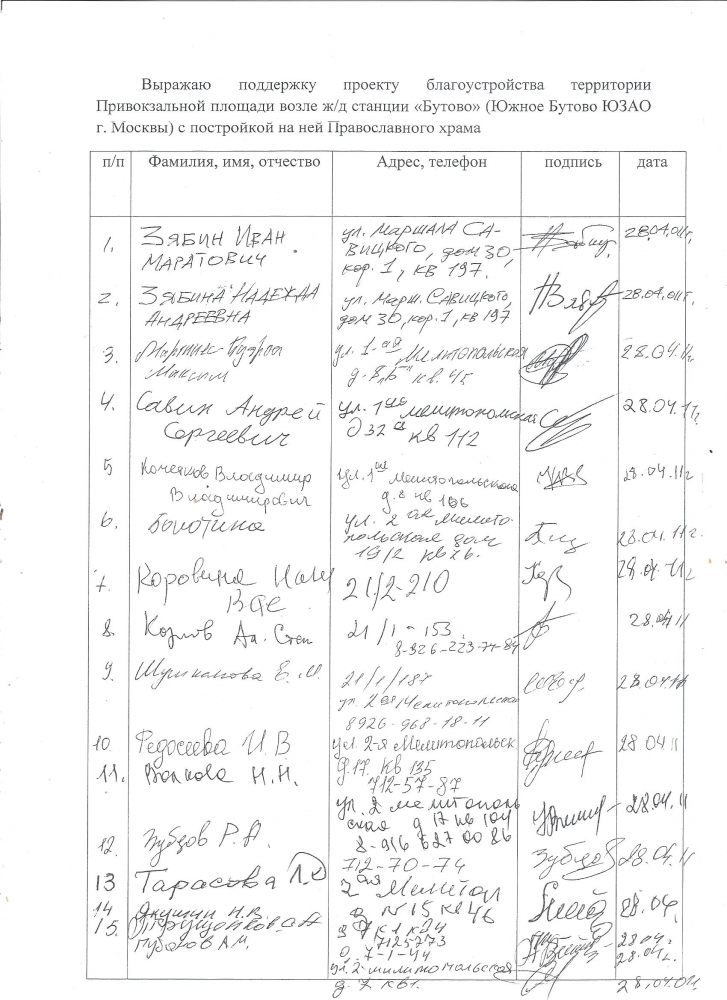 Выражаю поддержку проекту благоустройства территории
Привокзальной площади возле ж/д станции «Бутово» (Южное Бутово ЮЗАО
г. Москвы) с постройкой на ней Православного храма
п/п Фамилия, имя, отчество Адрес, телефон подпись дата
1. ЗЯБИН ИВАН ул. МАРШАЛА СА- 28.04.11г.
МАРАТОВИЧ ВИЦКОГО, дом 30,
кор. 1, кв 197.
2. ЗЯБИНА НАДЕЖДА ул. МАРШ. САВИЦКОГО, 28.04.11г.
АНДРЕЕВНА дом 30, кор. 1, кв 197
3. ул. 1-ая Мелитопольская 28.04.11г.
Максим д. 8 "Б" кв. 45
4. Савин Андрей ул. 1ая мелитопольская 28.04.11г.
Сергеевич д 32а кв 112
5 Кочетков Владимир ул. 1ая Мелитопольская 28.04.11г
Владимирович д. 8 кв 166
6. Болотина ул. 2ая Мелито- 28.04.11г.
польская дом
19/2 кв 26.
7 Коровина 21/2-210 28.04.11г
8. Козлов Ал. Степ 21/1-153, 28.04 11
8-926-223-74-84
9. Е. М. 21/1/187 28.04.11
ул. 2ая Мелитопольская
8926-968-18-11
10. Федосеева И. В ул. 2-я Мелитопольск 28.04 11
11. Волкова Н. Н. д. 17. кв 135
712-57-87
ул. 2 мелитополь 28.04. 11
ская д 17 кв 104
8-916 627 00 86
12. Зубцов Р. А. 712-70-74 Зубцов 28.04.11
13 Тарасова Л. 2ая Мелитоп 28.04.
14 Якушин Н.В. д № 15 кв 46
15. д 7 к 1 к 24
7125773 28.04.
А.М. 0. 7-1-44 28.04.
ул. 2 милитопольская
д. 7 кв 1. 28.04.